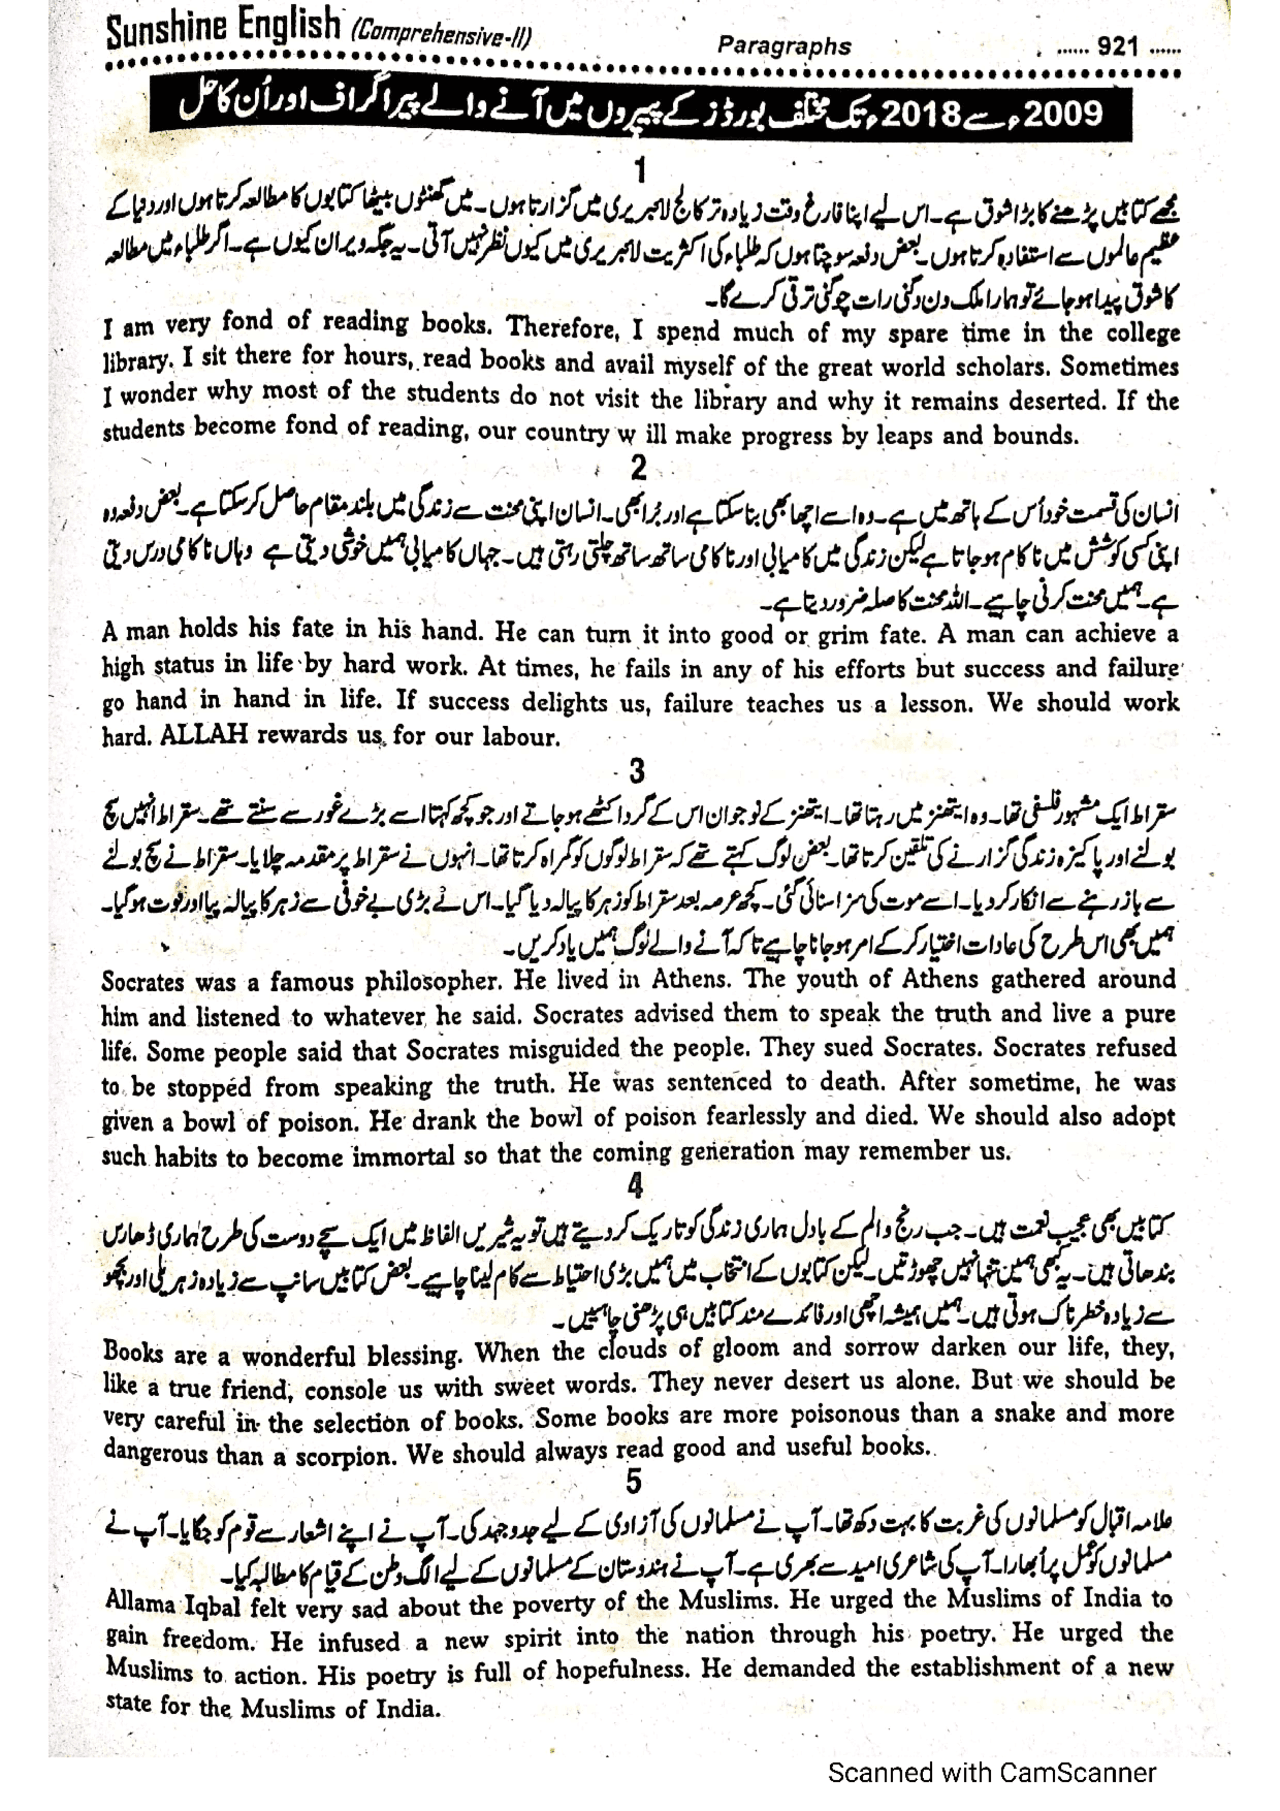 Sunshine English (Comprehensive-II)
Paragraphs
...... 921 ......
2009ء سے 2018ء تک مختلف بورڈز کے پیپروں میں آنے والے پیراگراف اور اُن کا حل
1
مجھے کتابیں پڑھنے کا بڑا شوق ہے۔ اس لیے اپنا فارغ وقت زیادہ تر کالج لائبریری میں گزارتا ہوں۔ میں گھنٹوں بیٹھا کتابوں کا مطالعہ کرتا ہوں اور دنیا کے
عظیم عالموں سے استفادہ کرتا ہوں۔ بعض دفعہ سوچتا ہوں کہ طلباء کی اکثریت لائبریری میں کیوں نظر نہیں آتی۔ یہ جگہ ویران کیوں ہے۔ اگر طلباء میں مطالعہ
کا شوق پیدا ہو جائے تو ہمارا ملک دن دگنی رات چوگنی ترقی کرے گا۔
I am very fond of reading books. Therefore, I spend much of my spare time in the college
library. I sit there for hours, read books and avail myself of the great world scholars. Sometimes
I wonder why most of the students do not visit the library and why it remains deserted. If the
students become fond of reading, our country w ill make progress by leaps and bounds.
2
انسان کی قسمت خود اُس کے ہاتھ میں ہے۔ وہ اسے اچھا بھی بنا سکتا ہے اور بُرا بھی۔ انسان اپنی محنت سے زندگی میں بلند مقام حاصل کر سکتا ہے۔ بعض دفعہ وہ
اپنی کسی کوشش میں ناکام ہو جاتا ہے لیکن زندگی میں کامیابی اور ناکامی ساتھ ساتھ چلتی رہتی ہیں۔ جہاں کامیابی ہمیں خوشی دیتی ہے وہاں ناکامی درس دیتی
ہے۔ ہمیں محنت کرنی چاہیے۔ اللہ محنت کا صلہ ضرور دیتا ہے۔
A man holds his fate in his hand. He can turn it into good or grim fate. A man can achieve a
high status in life by hard work. At times, he fails in any of his efforts but success and failure
go hand in hand in life. If success delights us, failure teaches us a lesson. We should work
hard. ALLAH rewards us for our labour.
3
سقراط ایک مشہور فلسفی تھا۔ وہ ایتھنز میں رہتا تھا۔ ایتھنز کے نوجوان اس کے گرد اکٹھے ہو جاتے اور جو کچھ کہتا اسے بڑے غور سے سنتے تھے۔ سقراط انہیں سچ
بولنے اور پاکیزہ زندگی گزارنے کی تلقین کرتا تھا۔ بعض لوگ کہتے تھے کہ سقراط لوگوں کو گمراہ کرتا تھا۔ انہوں نے سقراط پر مقدمہ چلایا۔ سقراط نے سچ بولنے
سے باز رہنے سے انکار کر دیا۔ اسے موت کی سزا سنائی گئی۔ کچھ عرصہ بعد سقراط کو زہر کا پیالہ دیا گیا۔ اس نے بڑی بے خوفی سے زہر کا پیالہ پیا اور فوت ہو گیا۔
ہمیں بھی اس طرح کی عادات اختیار کر کے امر ہو جانا چاہیے تاکہ آنے والے لوگ ہمیں یاد کریں۔
Socrates was a famous philosopher. He lived in Athens. The youth of Athens gathered around
him and listened to whatever he said. Socrates advised them to speak the truth and live a pure
life. Some people said that Socrates misguided the people. They sued Socrates. Socrates refused
to be stopped from speaking the truth. He was sentenced to death. After sometime, he was
given a bowl of poison. He drank the bowl of poison fearlessly and died. We should also adopt
such habits to become immortal so that the coming generation may remember us.
4
کتابیں بھی عجیب نعمت ہیں۔ جب رنج و الم کے بادل ہماری زندگی کو تاریک کر دیتے ہیں تو یہ شیریں الفاظ میں ایک سچے دوست کی طرح ہماری ڈھارس
بندھاتی ہیں۔ یہ کبھی ہمیں تنہا نہیں چھوڑتیں۔ لیکن کتابوں کے انتخاب میں ہمیں بڑی احتیاط سے کام لینا چاہیے۔ بعض کتابیں سانپ سے زیادہ زہریلی اور بچھو
سے زیادہ خطرناک ہوتی ہیں۔ ہمیں ہمیشہ اچھی اور فائدے مند کتابیں ہی پڑھنی چاہئیں۔
Books are a wonderful blessing. When the clouds of gloom and sorrow darken our life, they,
like a true friend, console us with sweet words. They never desert us alone. But we should be
very careful in the selection of books. Some books are more poisonous than a snake and more
dangerous than a scorpion. We should always read good and useful books.
5
علامہ اقبال کو مسلمانوں کی غربت کا بہت دکھ تھا۔ آپ نے مسلمانوں کی آزادی کے لیے جدوجہد کی۔ آپ نے اپنے اشعار سے قوم کو جگایا۔ آپ نے
مسلمانوں کو عمل پر اُبھارا۔ آپ کی شاعری امید سے بھری ہے۔ آپ نے ہندوستان کے مسلمانوں کے لیے الگ وطن کے قیام کا مطالبہ کیا۔
Allama Iqbal felt very sad about the poverty of the Muslims. He urged the Muslims of India to
gain freedom. He infused a new spirit into the nation through his poetry. He urged the
Muslims to action. His poetry is full of hopefulness. He demanded the establishment of a new
state for the Muslims of India.
Scanned with CamScanner